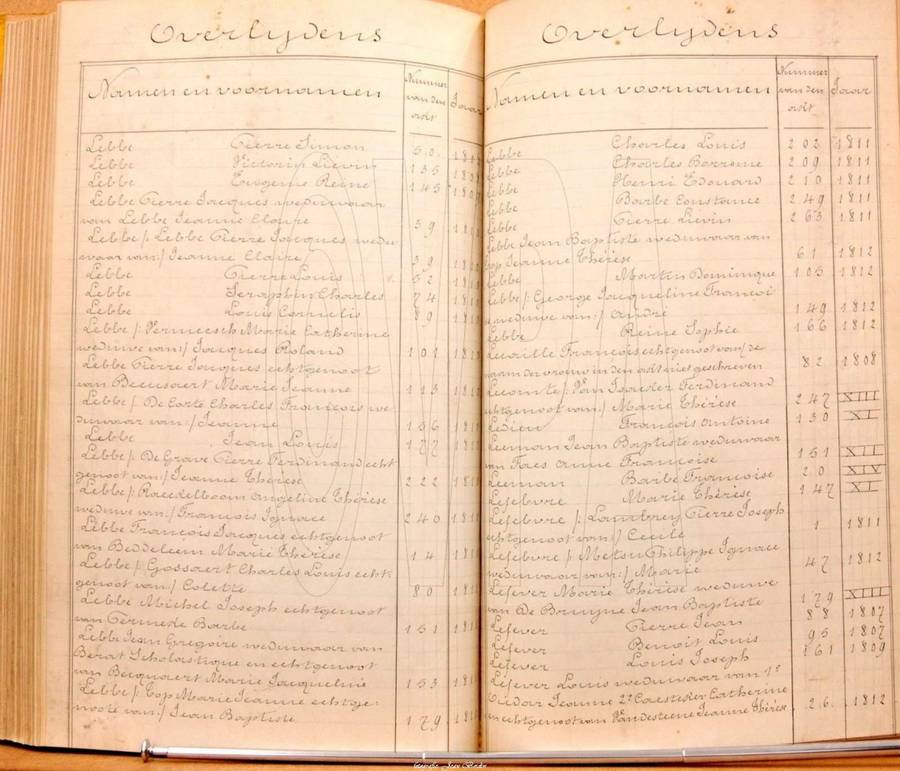 Overlydens
Namen en voornamen Nummer van den akt Jaar
Lebbe Pierre Simon 50
Lebbe Victorin Lievin 135
Lebbe Eugenie Reine 145
Lebbe Pierre Jacques weduwaar
van Lebbe Jeanne Claire 59
Lebbe /: Lebbe Pierre Jacques wedu
waar van:/ Jeanne Claire 59
Lebbe Pierre Louis 52
Lebbe Seraphin Charles 74
Lebbe Louis Cornelis 89
Lebbe /: Vermeesch Marie Catherine
weduwe van:/ Jacques Roland 101
Lebbe Pierre Jacques echtgenoot
van Decussaert Marie Jeanne 113
Lebbe /: De Corte Charles François we
duwaar van:/ Jeanne 156
Lebbe Jean Louis 177
Lebbe /: De Grave Pierre Ferdinand echt
genoot van:/ Jeanne Thérèse 222
Lebbe /: Raedelboom Angeline Thérèse
weduwe van:/ François Ignace 240
Lebbe François Jacques echtgenoot
van Beddeleem Marie Thérèse 14
Lebbe /: Gossaert Charles Louis echt
genoot van:/ Colette 80
Lebbe Michel Joseph echtgenoot
van Barbe 151
Lebbe Jean Gregoire weduwaar van
Scholastique en echtgenoot
van Marie Jacqueline 153
Lebbe /: Top Marie Jeanne echtge
noote van:/ Jean Baptiste 179
Overlydens
Namen en voornamen Nummer van den akt Jaar
Lebbe Charles Louis 202 1811
Lebbe Charles 209 1811
Lebbe Henri Edouard 210 1811
Lebbe Barbe Constance 249 1811
Lebbe Pierre Lievin 263 1811
Lebbe Jean Baptiste weduwaar van
Top Jeanne Thérèse 61 1812
Lebbe Martin Dominique 103 1812
Lebbe /: George Jacqueline Françoi
se weduwe van:/ André 149 1812
Lebbe Reine Sophie 166 1812
François echtgenoot van/de
naam der vrouw in den akt niet geschreven 82 1808
Lecomte /: Van Isacker Ferdinand
echtgenoot van:/ Marie Thérèse 247 XIII
Ledieu François Antoine 130 XI
Leeman Jean Baptiste weduwaar
van Faes Anne Françoise 151 XII
Leeman Barbe Françoise 20 XIV
Lefebvre Marie Thérèse 147 XI
Lefebvre /: Lambrey Pierre Joseph
echtgenoot van:/ Cecile 1 1811
Lefebvre /: Metsu Philippe Ignace
weduwaar van:/ Marie 47 1812
Lefever Marie Thérèse weduwe
van De Bruyne Jean Baptiste 179 XIII
Lefever Pierre Jean 88 1807
Lefever Benoit Louis 95 1807
Lefever Louis Joseph 161 1809
Lefever Louis weduwaar van 1°
Jeanne 2° Catherine
en echtgenoot van Vandesteene Jeanne Thérèse 26 1812